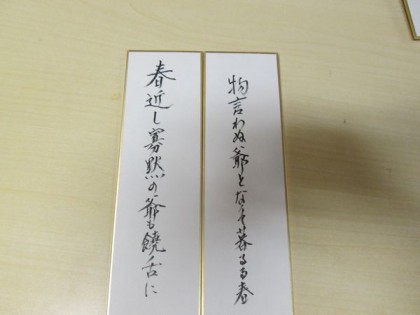 物言わぬ爺となりて暮るる春
春近し寡黙の爺も饒舌に